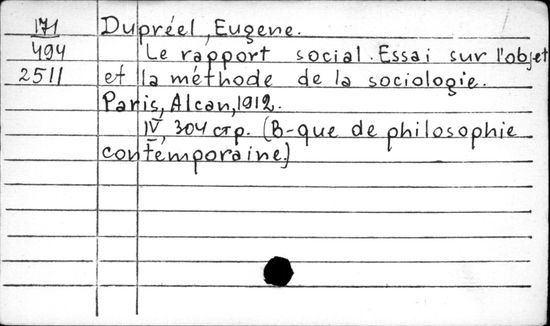 171 Dupréel, Eugene.
494 Le rapport social. Essai sur l'objet
2511 et la méthode de la sociologie.
Paris, Alcan, 1912.
IV, 304 стр. (B-que de philosophie
contemporaine.)